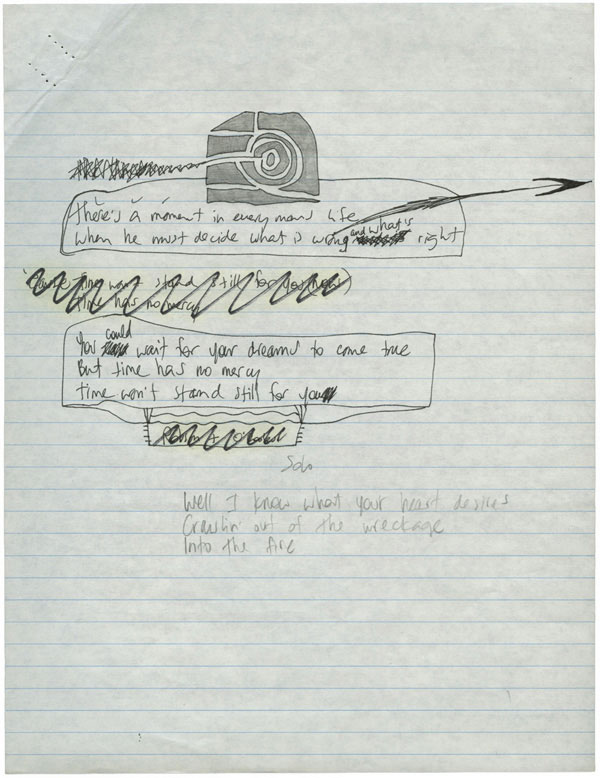 There's a moment in every mans life
When he must decide what is wrong and what is right
'Cause time won't stand still for you (now)
time has no mercy
You could wait for your dreams to come true
But time has no mercy
time won't stand still for you
Solo
Well I know what your heart desires
Crawlin' out of the wreckage
Into the fire